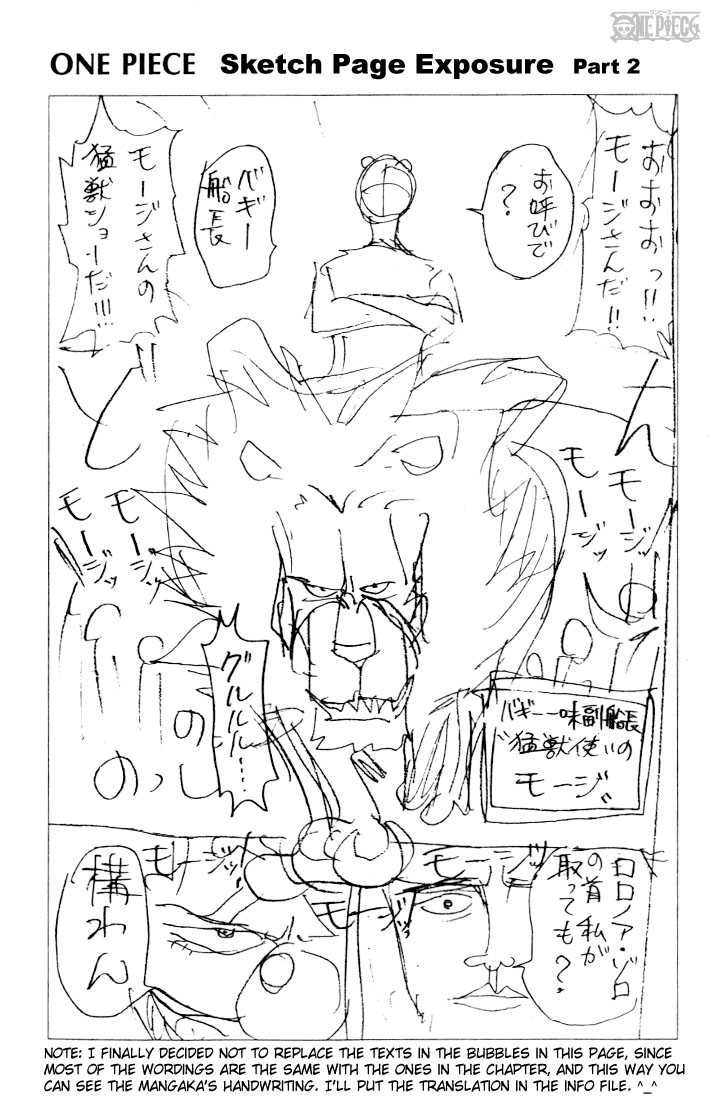 ONE PIECE
ONE PIECE Sketch Page Exposure Part 2
おおおっ!!
モージさんだ!!
お呼びで
?
バギー
船長
モージさんの
猛獣ショーだ!!!
ど
ん
!!
モージッ
モージッ
モージッ
モージッ
グルルル…
のっし
の
バギー一味副船長
"猛獣使い"の
モージ
ロロノア・ゾロ
の首私が
取っても?
モージッ
モージッ
モージッ
構わん
NOTE: I FINALLY DECIDED NOT TO REPLACE THE TEXTS IN THE BUBBLES IN THIS PAGE, SINCE
MOST OF THE WORDINGS ARE THE SAME WITH THE ONES IN THE CHAPTER, AND THIS WAY YOU
CAN SEE THE MANGAKA'S HANDWRITING. I'LL PUT THE TRANSLATION IN THE INFO FILE. ^_^